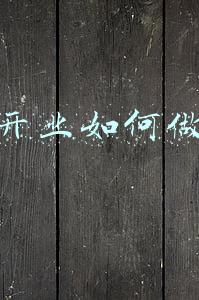 开业如何做